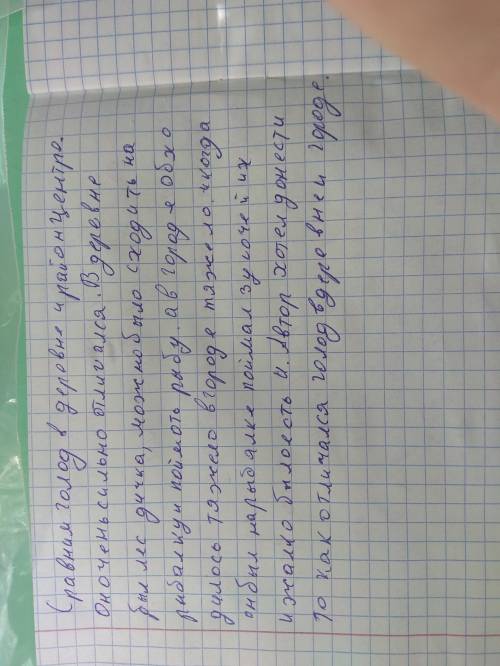 Сравним голод в деревне и райанцентро.
Оночень сильно отличался. В деревне
был лес дичка, можно было сходить на
рыбалку и поймоть рыбу. а в город е обхо
дилось тяжело вгороде тяжело. икогда
онбыл нарыбалке поймал зукочей их
ижалко былоесть и. Автор хотел донести
то как отличался голод вдеро внеи городе.